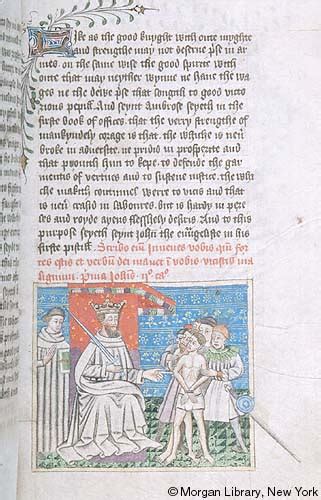 Like as the good knyght with oute myghte
and strengthe may not deserve pse in ar
mes on the same wise the good spirite with
oute that may neyther wynne ne have the wa
ges ne the dewe pse that longith to good victo
rious pepill. And seynt Ambrose seyth in the
first book of offices. that the very strengthe of
mankyndely corage is that. the whiche is never
broke in adversite. ne pridid in prosperite and
that to kepe. to defende the gar
mentis of vertues and to susteine justice. the whi
che makith continuel werre to vices and that
is never in laboures. that is hardy in pere
les and ayens flesshely desiris. And to this
purpose seyth seynt John the Euangeliste in his
firste pistill. Scribo vobis iuvenes quoniam for
tes estis et verbum dei manet in vobis vicistis ma
lignum. Prima Iohannis. ij° ca°
©Morgan Library, New York